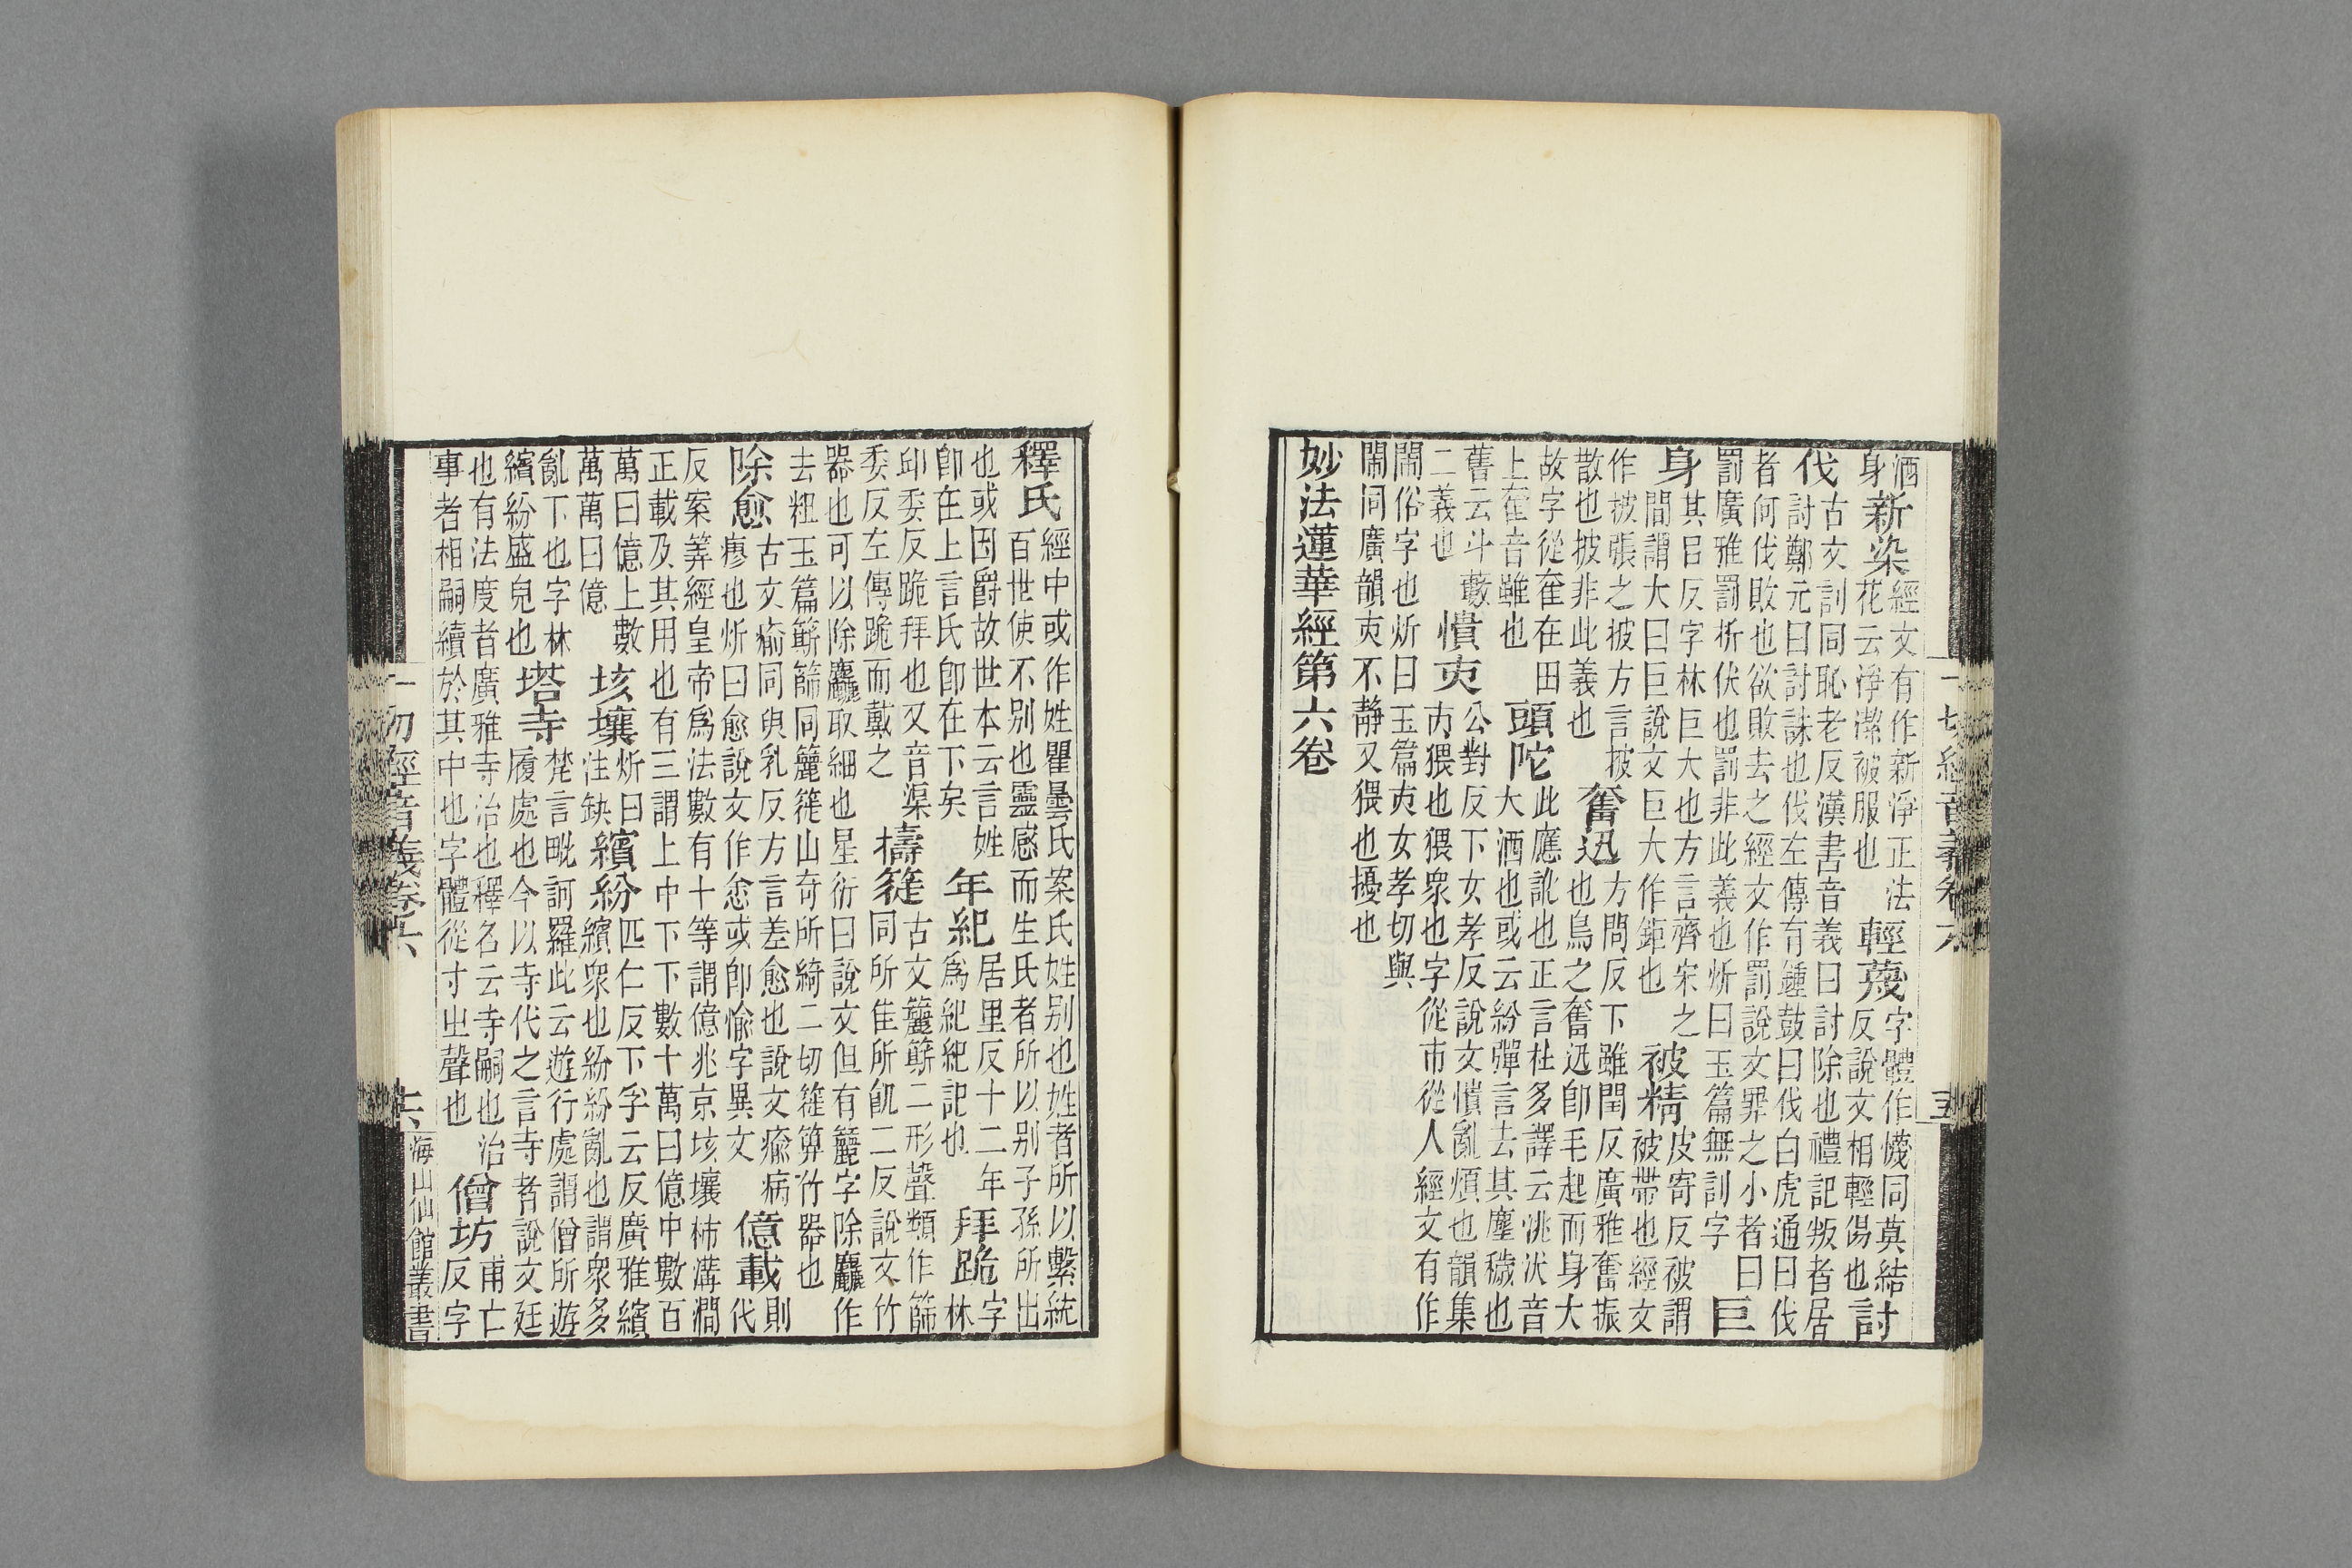 一切經音義卷六
酒身新染經文有作新淨正法花云淨潔被服也輕蔑字體作懱同莫結反說文相輕傷也討
伐古文訓同恥老反漢書音義曰討除也禮記叛者居討鄭元曰討誅也伐左傳有鍾鼓曰伐白虎通曰伐
者何伐敗也欲敗去之經文作罰說文罪之小者曰罰廣雅罰折伏也罰非此義也炘曰玉篇無訓字巨
身其呂反字林巨大也方言齊宋之間謂大曰巨說文巨大作鉅也被精皮寄反被謂被帶也經文
作披張之披方言披散也披非此義也奮迅方問反下雖閏反廣雅奮振也鳥之奮迅即毛起而身大
故字從奞在田上奞音雖也頭陀此應訛也正言杜多譯云洮汏音大洒也或云紛彈言去其塵穢也
舊云斗藪二義也憒㕻公對反下女孝反說文憒亂煩也韻集㕻猥也猥衆也字從市從人經文有作
閙俗字也炘曰玉篇㕻女孝切與閙同廣韻㕻不靜又猥也擾也
妙法蓮華經第六卷
釋氏經中或作姓瞿曇氏案氏姓别也姓者所以繫統百世使不别也靈感而生氏者所以别子孫所出
也或因爵故世本云言姓即在上言氏即在下矣年紀居里反十二年爲紀紀記也拜跪字林
邱委反跪拜也又音渠委反左傳跪而戴之擣簁古文籭簛二形聲類作篩同所佳所飢二反說文竹
器也可以除麤取細也星衍曰說文但有籭字除麤作去粗玉篇簛篩同籭簁山奇所綺二切簁箅竹器也
除愈古文瘉同臾乳反方言差愈也說文瘉病瘳也炘曰愈說文作悆或即愉字異文億載則代
反案筭經皇帝爲法數有十等謂億兆京垓壤秭溝澗正載及其用也有三謂上中下下數十萬曰億中數百
萬曰億上數萬萬曰億垓壤炘曰注缺繽紛匹仁反下孚云反廣雅繽繽衆也紛紛亂也謂衆多
亂下也字林繽紛盛皃也塔寺梵言毗訶羅此云遊行處謂僧所遊履處也今以寺代之言寺者說文廷
也有法度者廣雅寺治也釋名云寺嗣也治事者相嗣續於其中也字體從寸㞢聲也僧坊甫亡反字
一切經音義卷六
十六
海山仙館叢書